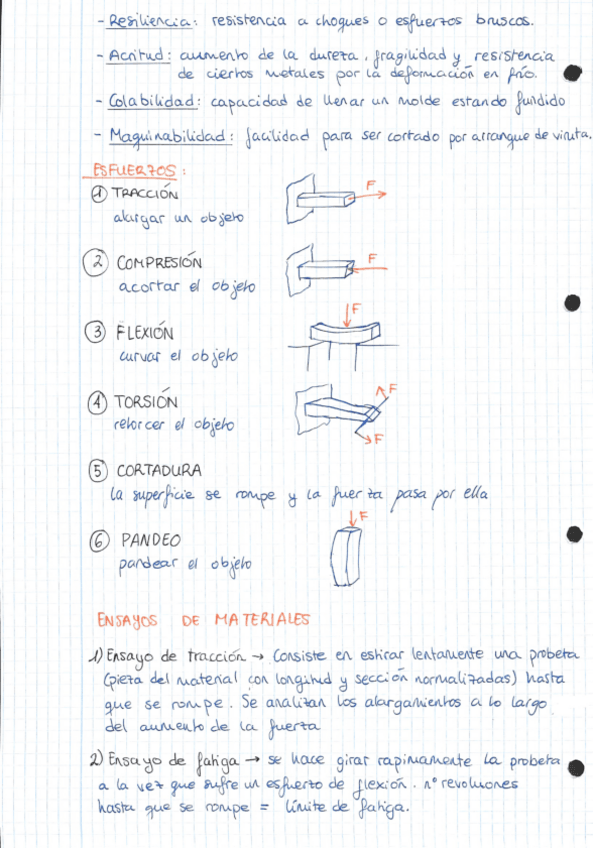 - Resiliencia: resistencia a choques o esfuerzos bruscos.
- Acritud: aumento de la dureza, fragilidad y resistencia
de ciertos metales por la deformación en frío.
- Colabilidad: capacidad de llenar un molde estando fundido
- Maquinabilidad: facilidad para ser cortado por arranque de viruta.
ESFUERZOS:
1 TRACCIÓN
alargar un objeto
F
2 COMPRESIÓN
acortar el objeto
F
3 FLEXIÓN
curvar el objeto
F
4 TORSIÓN
retorcer el objeto
F
F
5 CORTADURA
la superficie se rompe y la fuerza pasa por ella
6 PANDEO
pandear el objeto
F
ENSAYOS DE MATERIALES
1) Ensayo de tracción → Consiste en estirar lentamente una probeta
(pieza del material con longitud y sección normalizadas) hasta
que se rompe. Se analizan los alargamientos a lo largo
del aumento de la fuerza
2) Ensayo de fatiga → se hace girar rapinamente la probeta
a la vez que sufre un esfuerzo de flexión. nº revoluciones
hasta que se rompe = límite de fatiga.